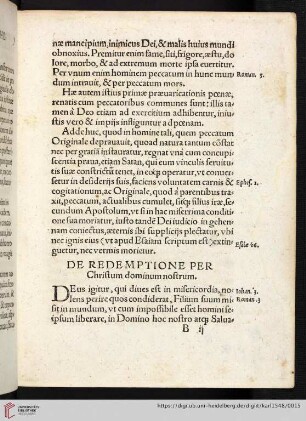 næ mancipium, inimicus Dei, & malis huius mundi
obnoxius. Premitur enim fame, siti, frigore, æstu, do
lore, morbo, & ad extremum morte ipsa euertitur.
Per vnum enim hominem peccatum in hunc mun Roman. 5.
dum intrauit, & per peccatum mors.
Hæ autem istius primæ præuaricationis pœnæ,
renatis cum peccatoribus communes sunt: illis ta
men à Deo etiam ad exercitium adhibentur, iniu
stis verò & impijs infliguntur ad pœnam.
Adde huc, quod in homine tali, quem peccatum
Originale deprauauit, quoad natura tantum côstat
nec per gratiã instauratur, regnat vnà cum concupi
scentia præua, etiam Satan, qui eum vinculis seruitu
tis suæ constrictũ tenet, in eoq́ operatur, vt conuer
setur in desiderijs suis, faciens voluntatem carnis & Ephes. 2.
cogitationum, ac Originale, quod à parentibus tra
xit, peccatum, actualibus cumulet, sitq́ filius iræ, se
cundum Apostolum, vt si in hac miserrima conditio
ne suamoriatur, iusto tandẽ Dei iudicio in gehen
nam coniectus, æternis ibi supplicijs plectatur, vbi
nec ignis eius (vt apud Esaiam scriptum est) extin Esaie 66.
guetur, nec vermis morietur.
DE REDEMPTIONE PER
Christum dominum nostrum.
DEus igitur, qui diues est in misericordia, no Iohan. 3.
lens perire quos condiderat, Filium suum mi Roman. 3
sit in mundum, vt cum impossibile esset homini se
ipsum liberare, in Domino hoc nostro atq́ Salua
B ij
UNIVERSITÄTS-
BIBLIOTHEK
HEIDELBERG
https://digi.ub.uni-heidelberg.de/diglit/karl1548/0015